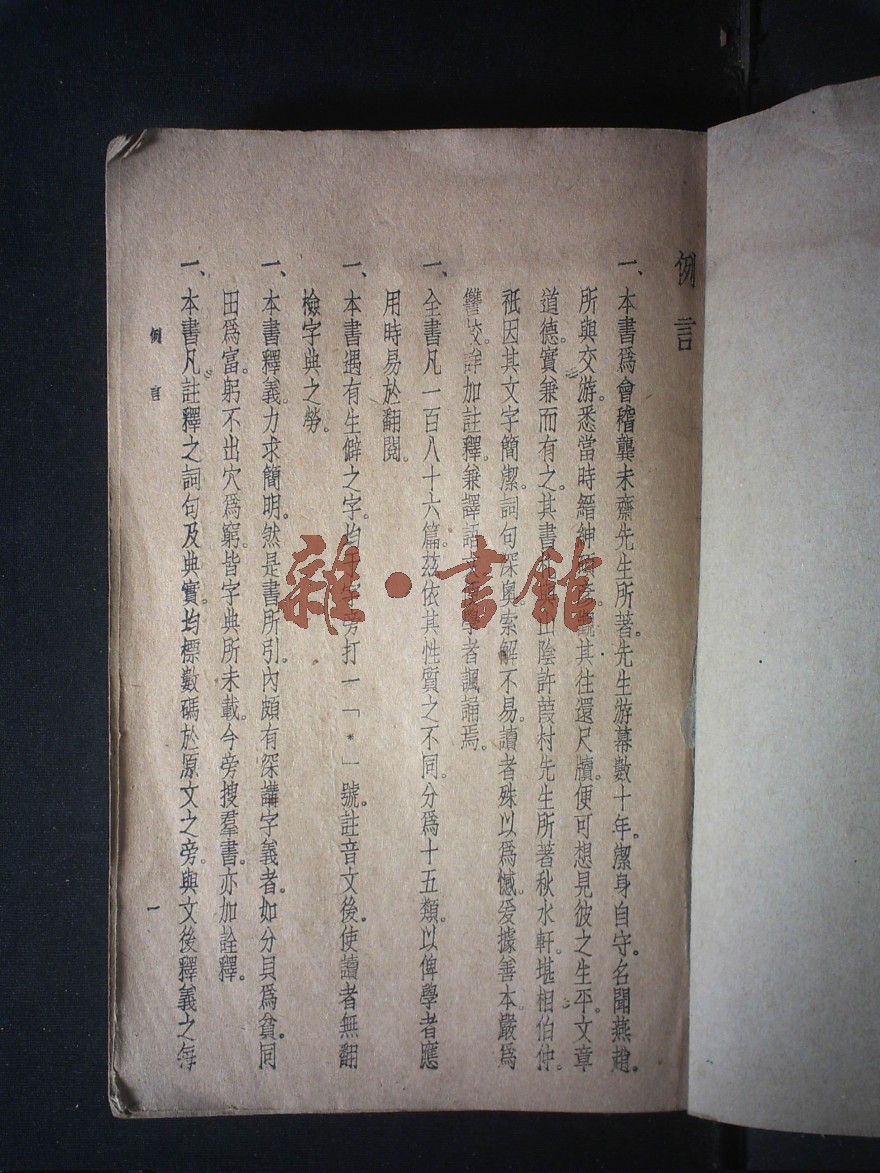 例言
一、本書爲會稽龔未齋先生所著。先生游幕數十年。潔身自守。名聞燕趙。
所與交游。悉當時縉紳碩彥。觀其往還尺牘。便可想見彼之生平。文章
道德。實兼而有之。其書與山陰許葭村先生所著秋水軒。堪相伯仲。
祇因其文字簡潔。詞句深奧。索解不易。讀者殊以爲憾。爰據善本。嚴爲
讐校。詳加註釋。兼譯語 學者諷誦焉。
一、全書凡一百八十六篇。茲依其性質之不同。分爲十五類。以俾學者應
用時易於翻閱。
一、本書遇有生僻之字。均于字旁打一「*」號。註音文後。使讀者無翻
檢字典之勞。
一、本書釋義。力求簡明。然是書所引。內頗有深講字義者。如分貝爲貧。同
田爲富。躬不出穴爲窮。皆字典所未載。今旁搜羣書。亦加詮釋。
一、本書凡註釋之詞句及典實。均標數碼於原文之旁。與文後釋義之每
例言
一
雜·書館